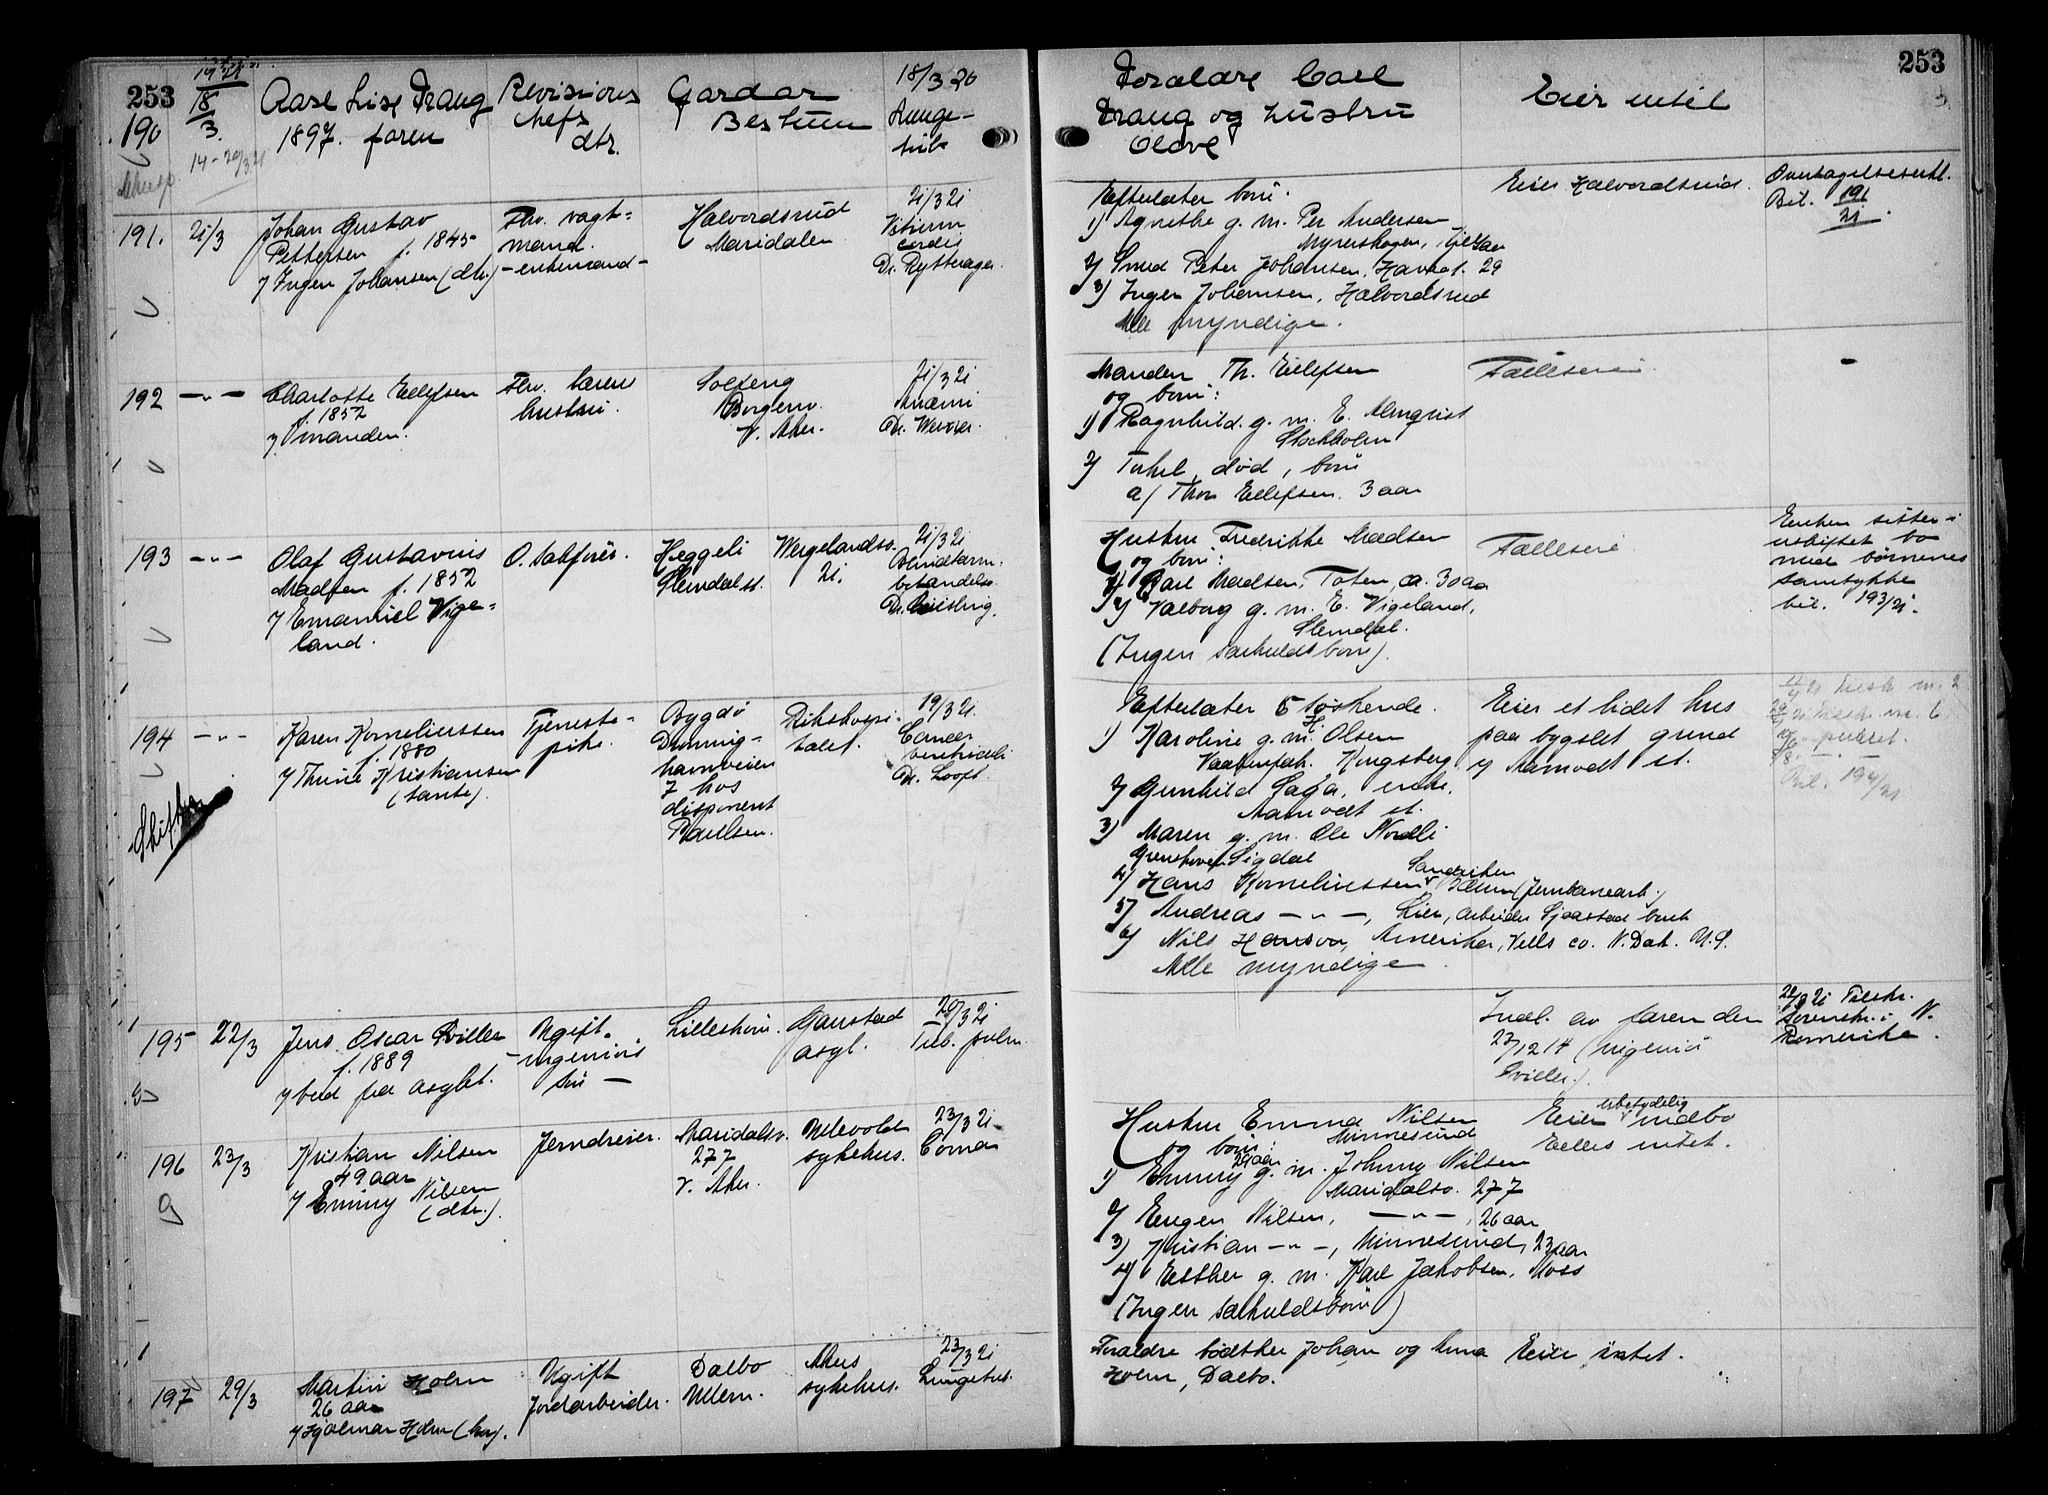 253
190
18/3
14-20/3 21
Aase Lise Trang
1897. faren
Revisions
chefs
dtr.
Gardar
Bestum
18/3 20
Lunge-
Foreldre Carl
Trang og hustru
Olave
Eier intet
253
191.
21/3
Johan Gustav
Pettersen f. 1845
v/ Inger Johansen (dtr.)
Fhv. vagt-
mand.
-enkemand-
Halvordsrud
Maridalen
21/3 21
Vitium
cordis
Dr. Rytterager.
Efterlater barn.
1) Agnethe g. m. Per Andersen
Myrerskogen, Gjelleraasen
2) Smed Peter Johansen, Havnegt. 29
3) Inger Johansen, Halvordsrud
Alle myndige.
Eier Halvordsrud.
Overtagelseserkl.
Bil. 191/21.
192
-"-
Charlotte Eilefsen
f. 1852
v/ manden.
Fhv. lærers
hustru.
Solheng
Borgenv.
V. Aker.
21/3 21
Anæmi
Dr. Werner.
Manden Th. Eilefsen
og barn:
1) Ragnhild. g. m. E. Almqvist
Stockholm
2) Torkel, død, barn
a/ Thor Eilefsen. 3 aar
Fælleseie
-
193
-"-
Olaf Gustavius
Madsen f. 1852
v/ Emanuel Vige-
land.
O. sakfører.
Heggeli
Slemdal st.
Wergelandsv.
21.
21/3 21
Blindtarm-
betændelse
Dr. Quisling.
Hustru Fredrikke Madsen
og barn:
1) Carl Madsen, Toten, ca. 30 aar
2) Valborg g. m. E. Vigeland,
Slemdal.
(Ingen særkuldsbarn).
Fælleseie
Enken sitter i
uskiftet bo
med børnenes
samtykke
bil. 193/21.
194
-"-
Skiftes
Karen Korneliussen
f. 1880
v/ Thrine Kristiansen
(tante).
Tjeneste-
pike.
Bygdø
Dronning-
havnveien
7 hos
disponent
Paulsen.
Rikshospi-
talet.
19/3 21.
Cancer
ventriculi
Dr. Looft.
Efterlater 6 søskende.
1) Karoline g. m. H. Olsen
Vaabenfab. Kongsberg
2) Gunhild Saga, enke.
Aamodt st.
3) Maren g. m. Ole Nordli
Grenskoven Sigdal
4) Hans Korneliussen, Sandviken
Bærum (Jernbanearb.)
5) Andreas -"-, Lier, arbeider Sjaastad bruk
6) Nils Hansen, Amerika, Vells co. N. Dak. U.S.
Alle myndige.
Eier et lidet hus
paa bygslet grund
v/ Aamodt st.
Bil. 194/21
195
22/3
Jens Oscar Qviller
f. 1889
v/ bud fra asylet.
Ugift.
-ingeniørs
søn-
Lilleskow.
Gaustad
asyl.
20/3 21
Tub. pulm.
Indl. av faren den
27/12 14 (ingeniør
Qviller).
22/3 21 Tilskr.
sorenskr. i N.
Romerike.
196
23/3
Kristian Nilsen
49 aar
v/ Emmy Nilsen
(dtr.).
Jerndreier.
Maridalsv.
277
V. Aker.
Ullevold
sykehus.
23/3 21
Coma
Hustru Emma Nilsen
Minnesund
og barn:
1) Emmy 29 aar g. m. Johnny Nilsen
Maridalsv. 277
2) Eugen Nilsen, -"-, 26 aar
3) Kristian -"-, Minnesund, 23 aar
4) Esther g. m. Karl Jakobsen, Moss
(Ingen særkuldsbarn)
Eier ubetydelig indbo
Ellers intet.
197
29/3
Martin Holm
26 aar
v/ Hjalmar Holm (bror).
Ugift
Jordarbeider.
Dalbo
Ullern.
Akers
sykehus.
23/3 21
Lungetub.
Foreldre bødtker Johan og Anna
Holm, Dalbo.
Eier intet.